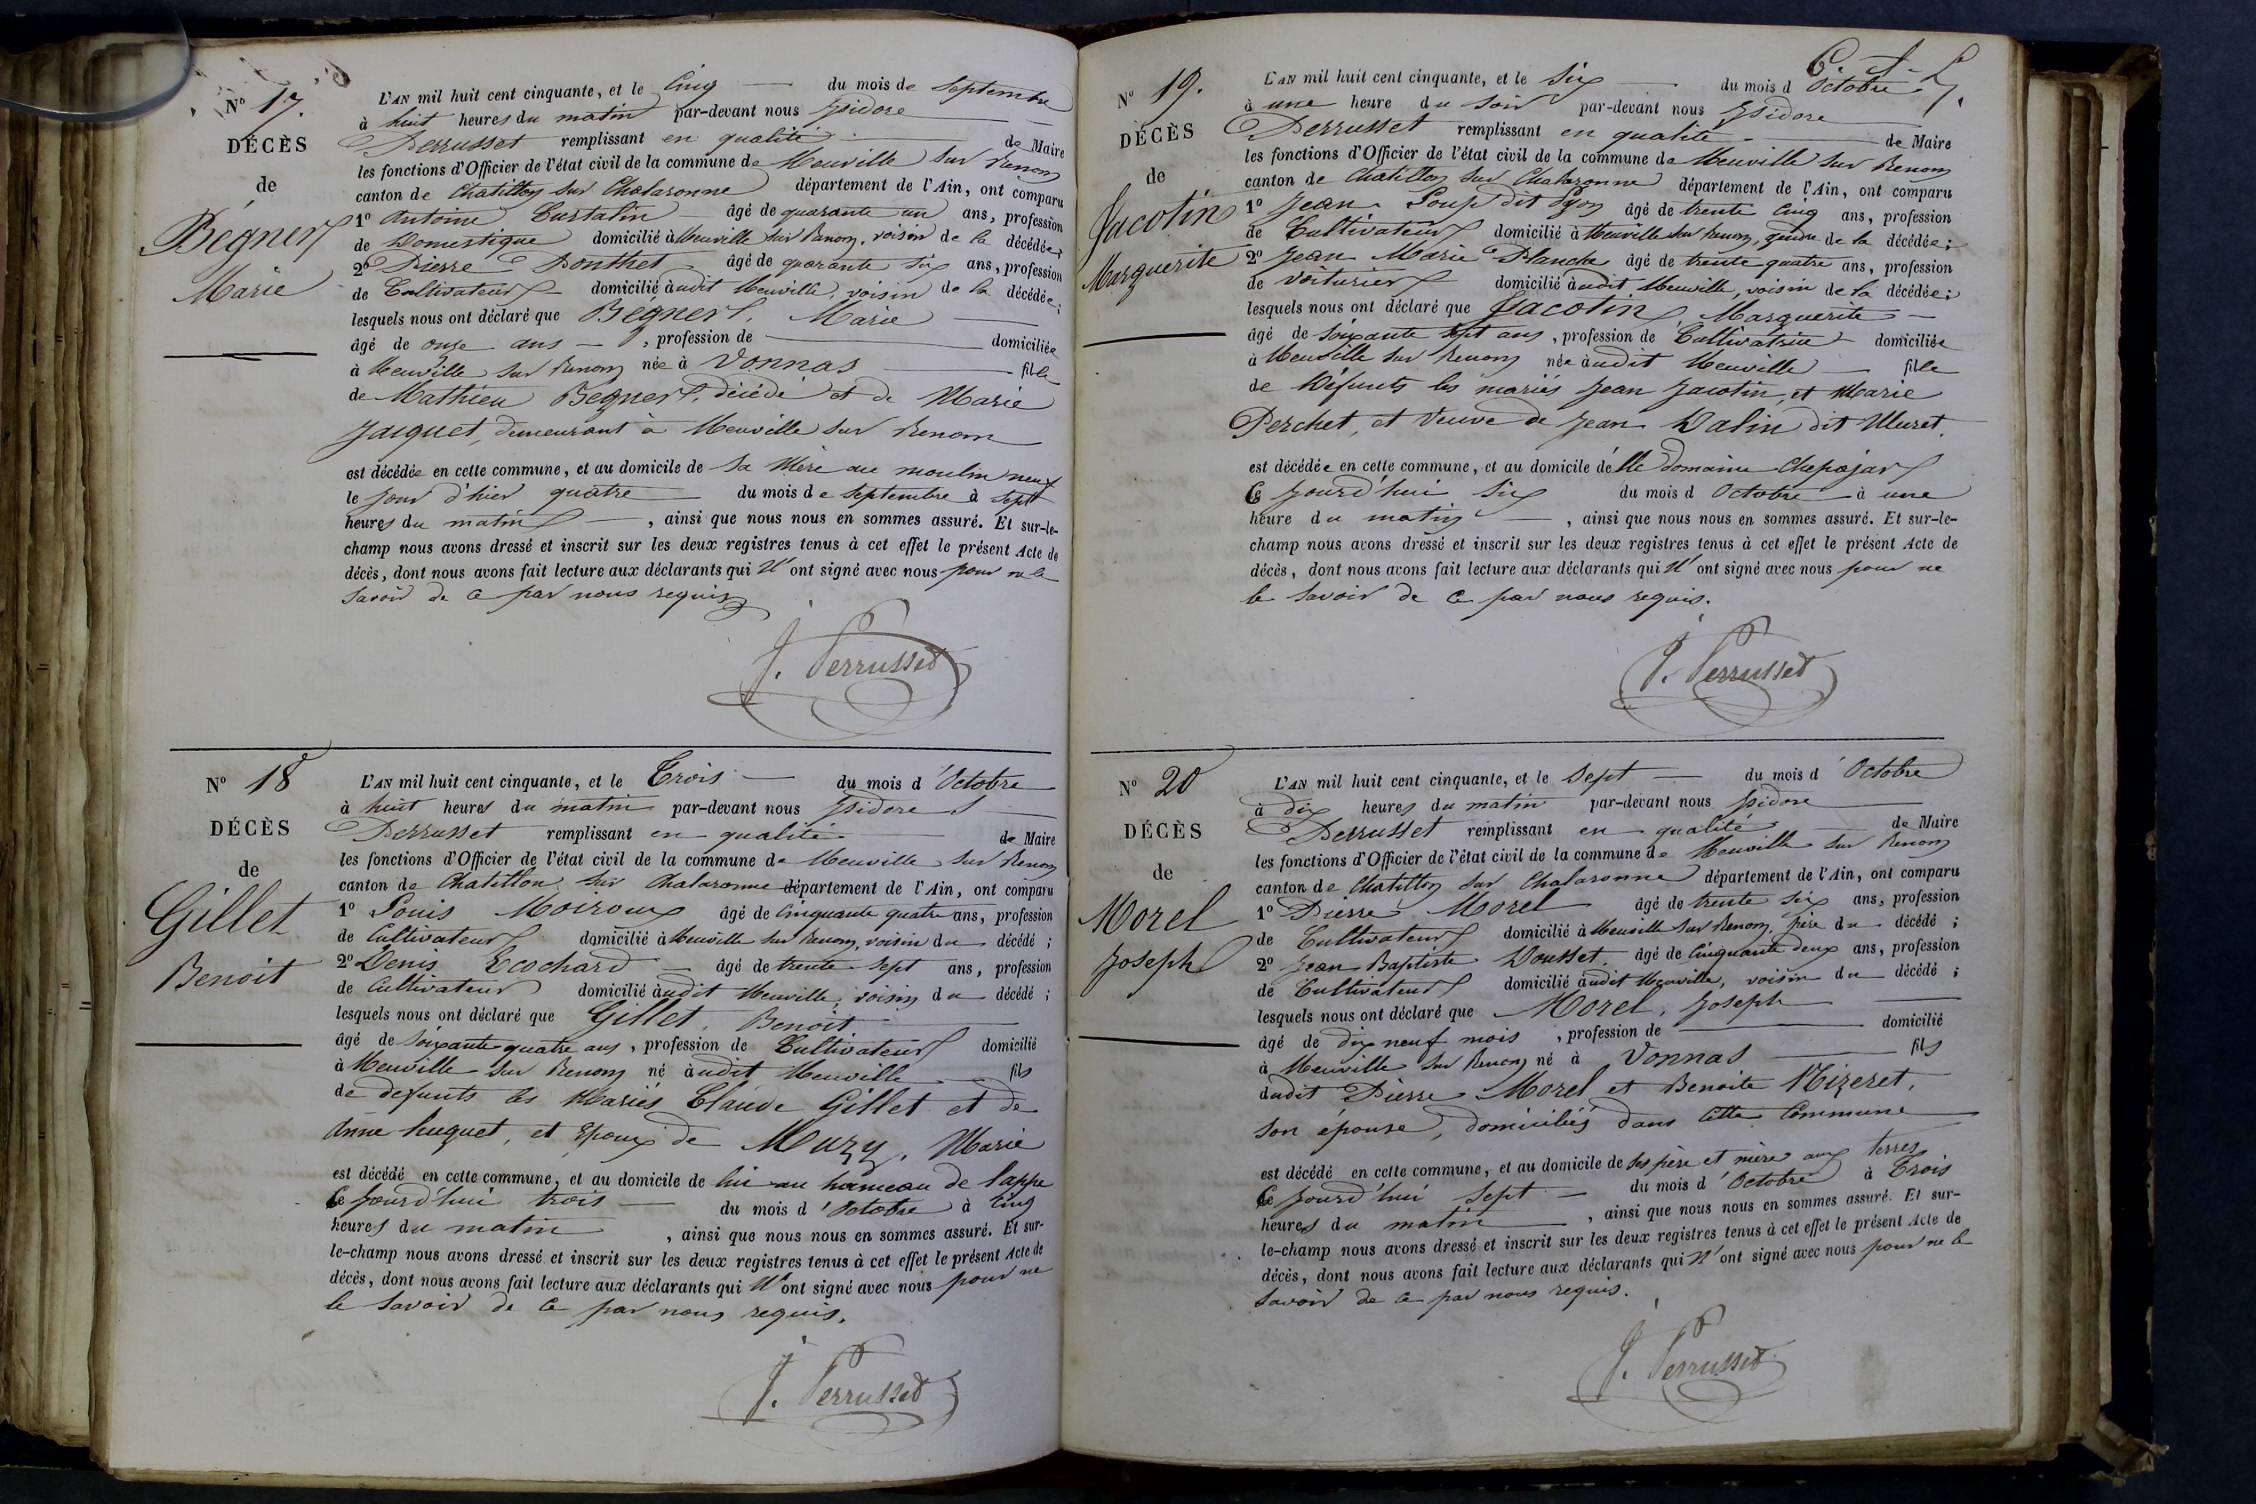 Nº 17.
DÉCÈS
de
Bégner
Marie
L'AN mil huit cent cinquante, et le Cinq du mois de Septembre
à huit heures du matin par-devant nous Isidore
Perrusset remplissant en qualité de Maire
les fonctions d'Officier de l'état civil de la commune de Neuville sur Renom
canton de Chatillon sur Chalaronne département de l'Ain, ont comparu
1º Antoine Curtalin âgé de quarante un ans, profession
de Domestique domicilié à Neuville sur Renom, voisin de la décédée;
2º Pierre Ponthet âgé de quarante six ans, profession
de Cultivateur domicilié audit Neuville, voisin de la décédée;
lesquels nous ont déclaré que Bégner, Marie
âgé de onze ans, profession de domiciliée
à Neuville sur Renom née à Vonnas fille
de Mathieu Begner, décédé et de Marie
Jacquet, demeurant à Neuville sur Renom
est décédée en cette commune, et au domicile de sa Mère au moulin neuf
le jour d'hier quatre du mois de Septembre à sept
heures du matin, ainsi que nous nous en sommes assuré. Et sur-le-
champ nous avons dressé et inscrit sur les deux registres tenus à cet effet le présent Acte de
décès, dont nous avons fait lecture aux déclarants qui N'ont signé avec nous pour ne le
savoir de ce par nous requis
J. Perrusset
Nº 18
DÉCÈS
de
Gillet
Benoit
L'AN mil huit cent cinquante, et le Trois du mois d'Octobre
à huit heures du matin par-devant nous Isidore
Perrusset remplissant en qualité de Maire
les fonctions d'Officier de l'état civil de la commune de Neuville sur Renom
canton de Chatillon sur Chalaronne département de l'Ain, ont comparu
1º Louis Moiroux âgé de Cinquante quatre ans, profession
de Cultivateur domicilié à Neuville sur Renom, voisin du décédé;
2º Denis Ecochard âgé de trente sept ans, profession
de Cultivateur domicilié audit Neuville, voisin du décédé;
lesquels nous ont déclaré que Gillet, Benoit
âgé de Soixante quatre ans, profession de Cultivateur domicilié
à Neuville sur Renom né audit Neuville fils
de defunts les Mariés Claude Gillet et de
Anne huguet, et Epoux de Muzy, Marie
est décédé en cette commune, et au domicile de lui au hameau de Lappe
Ce Jourd'hui trois du mois d'Octobre à Cinq
heures du matin, ainsi que nous nous en sommes assuré. Et sur-
le-champ nous avons dressé et inscrit sur les deux registres tenus à cet effet le présent Acte de
décès, dont nous avons fait lecture aux déclarants qui N'ont signé avec nous pour ne
le Savoir de ce par nous requis.
J. Perrusset
Nº 19.
DÉCÈS
de
Jacotin
Marguerite
L'AN mil huit cent cinquante, et le Six du mois d Octobre
à une heure du soir par-devant nous Isidore
Perrusset remplissant en qualité de Maire
les fonctions d'Officier de l'état civil de la commune de Neuville sur Renom
canton de Chatillon sur Chalaronne département de l'Ain, ont comparu
1º Jean Loup dit Pyon âgé de trente Cinq ans, profession
de Cultivateur domicilié à Neuville sur Renom, gendre de la décédée;
2º Jean Marie Planche âgé de trente quatre ans, profession
de voiturier domicilié audit Neuville, voisin de la décédée;
lesquels nous ont déclaré que Jacotin, Marguerite
âgé de soixante sept ans, profession de Cultivatrice domiciliée
à Neuville sur Renom née audit Neuville fille
de Défunts les mariés Jean Jacotin, et Marie
Perchet, et Veuve de Jean Dalin dit Muret.
est décédée en cette commune, et au domicile d'elle domaine Chepajar
Ce Jourd'hui Six du mois d Octobre à une
heure du matin, ainsi que nous nous en sommes assuré. Et sur-le-
champ nous avons dressé et inscrit sur les deux registres tenus à cet effet le présent Acte de
décès, dont nous avons fait lecture aux déclarants qui N'ont signé avec nous pour ne
le Savoir de ce par nous requis.
J. Perrusset
Nº 20
DÉCÈS
de
Morel
Joseph
L'AN mil huit cent cinquante, et le Sept du mois d'Octobre
à dix heures du matin par-devant nous Isidore
Perrusset remplissant en qualité de Maire
les fonctions d'Officier de l'état civil de la commune de Neuville sur Renom
canton de Chatillon sur Chalaronne département de l'Ain, ont comparu
1º Pierre Morel âgé de trente six ans, profession
de Cultivateur domicilié à Neuville sur Renom, père du décédé;
2º Jean Baptiste Dousset. âgé de Cinquante deux ans, profession
de Cultivateur domicilié audit Neuville, voisin du décédé;
lesquels nous ont déclaré que Morel, Joseph
âgé de dix neuf mois, profession de domicilié
à Neuville sur Renom né à Vonnas fils
dudit Pierre Morel et Benoite Nizeret,
son épouse, domiciliés dans cette Commune
est décédé en cette commune, et au domicile de ses père et mère aux terres
Ce Jourd'hui Sept du mois d'Octobre à Trois
heures du matin, ainsi que nous nous en sommes assuré. Et sur-
le-champ nous avons dressé et inscrit sur les deux registres tenus à cet effet le présent Acte de
décès, dont nous avons fait lecture aux déclarants qui N'ont signé avec nous pour ne le
Savoir de ce par nous requis.
J. Perrusset